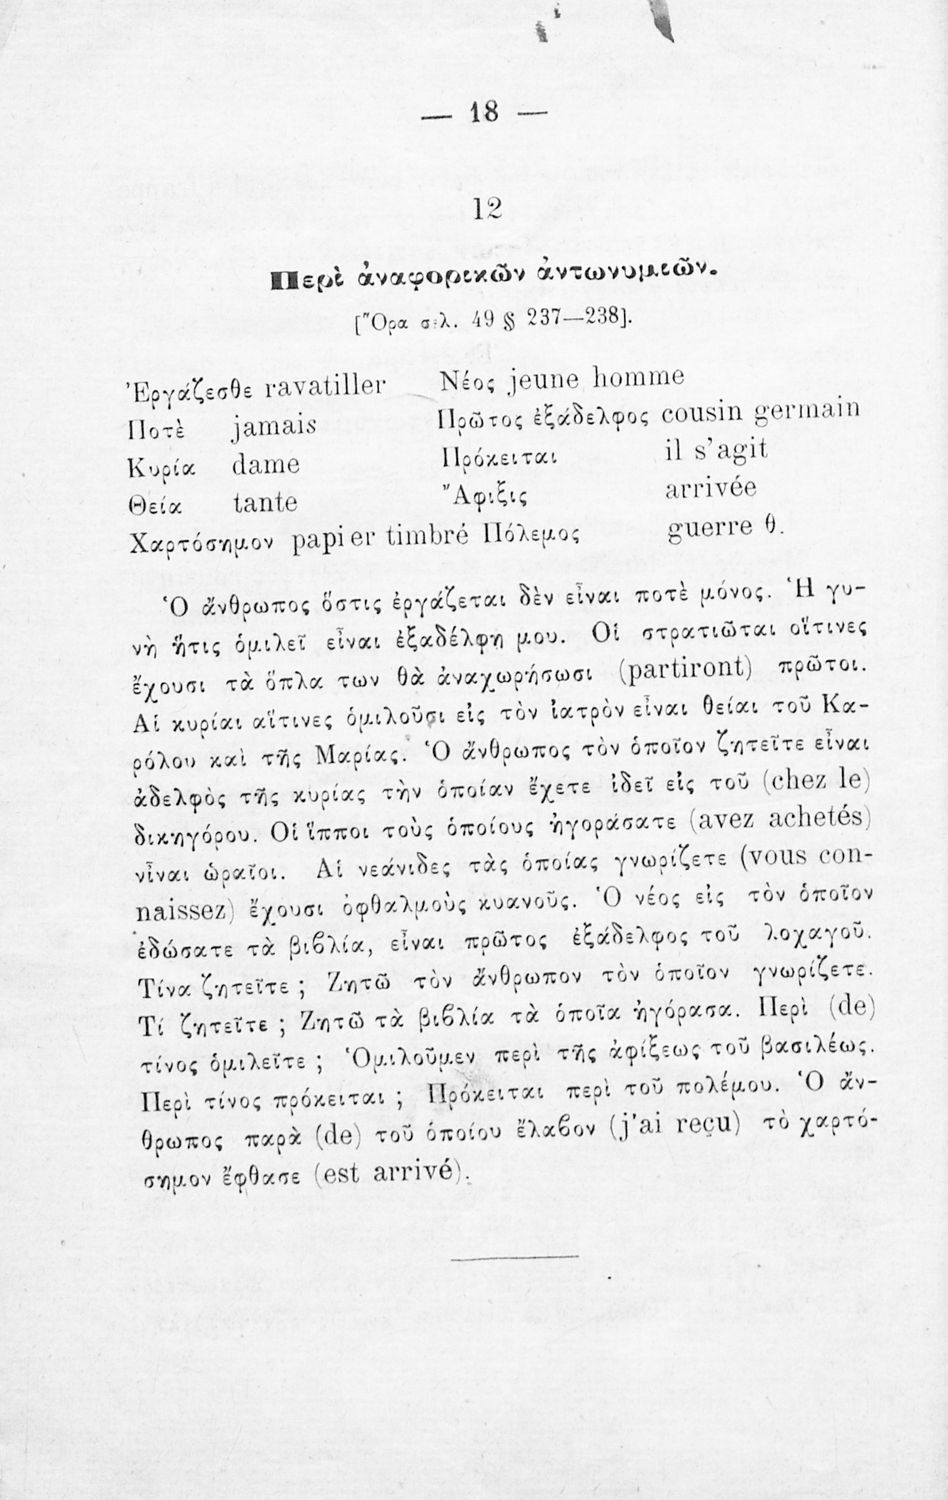 — 18 —
12
Περὶ ἀναφορικῶν ἀντωνυμιῶν.
[Ὅρα σελ. 49 § 237—238].
Ἐργάζεσθε ravatiller Νέος jeune homme
Ποτὲ jamais Πρῶτος ἐξάδελφος cousin germain
Κυρία dame Πρόκειται il s'agit
Θεία tante Ἄφιξις arrivée
Χαρτόσημον papier timbré Πόλεμος guerre θ.
Ὁ ἄνθρωπος ὅστις ἐργάζεται δὲν εἶναι ποτὲ μόνος. Ἡ γυ-
νὴ ἥτις ὁμιλεῖ εἶναι ἐξαδέλφη μου. Οἱ στρατιῶται οἵτινες
ἔχουσι τὰ ὅπλα των θὰ ἀναχωρήσωσι (partiront) πρῶτοι.
Αἱ κυρίαι αἵτινες ὁμιλοῦσι εἰς τὸν ἰατρὸν εἶναι θείαι τοῦ Κα-
ρόλου καὶ τῆς Μαρίας. Ὁ ἄνθρωπος τὸν ὁποῖον ζητεῖτε εἶναι
ἀδελφὸς τῆς κυρίας τὴν ὁποίαν ἔχετε ἰδεῖ εἰς τοῦ (chez le)
δικηγόρου. Οἱ ἵπποι τοὺς ὁποίους ἠγοράσατε (avez achetés)
νἶναι ὡραῖοι. Αἱ νεάνιδες τὰς ὁποίας γνωρίζετε (vous con-
naissez) ἔχουσι ὀφθαλμοὺς κυανοῦς. Ὁ νέος εἰς τὸν ὁποῖον
ἐδώσατε τὰ βιβλία, εἶναι πρῶτος ἐξάδελφος τοῦ λοχαγοῦ.
Τίνα ζητεῖτε ; Ζητῶ τὸν ἄνθρωπον τὸν ὁποῖον γνωρίζετε.
Τί ζητεῖτε ; Ζητῶ τὰ βιβλία τὰ ὁποῖα ἠγόρασα. Περὶ (de)
τίνος ὁμιλεῖτε ; Ὁμιλοῦμεν περὶ τῆς ἀφίξεως τοῦ βασιλέως.
Περὶ τίνος πρόκειται ; Πρόκειται περὶ τοῦ πολέμου. Ὁ ἄν-
θρωπος παρὰ (de) τοῦ ὁποίου ἔλαβον (j'ai reçu) τὸ χαρτό-
σημον ἔφθασε (est arrivé).